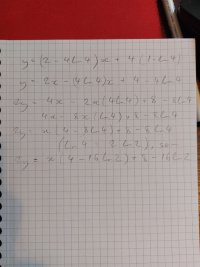 y = (2 - 4ln4)x + 4(1-ln4)
y = 2x - (4ln4)x + 4 - 4ln4
2y = 4x - 2x(4ln4) + 8 - 8ln4
4x - 8x(ln4) + 8 - 8ln4
2y = x(4 - 8ln4) + 8 - 8ln4
(ln4 = 2ln2), so
2y = x(4 - 16ln2) + 8 - 16ln2